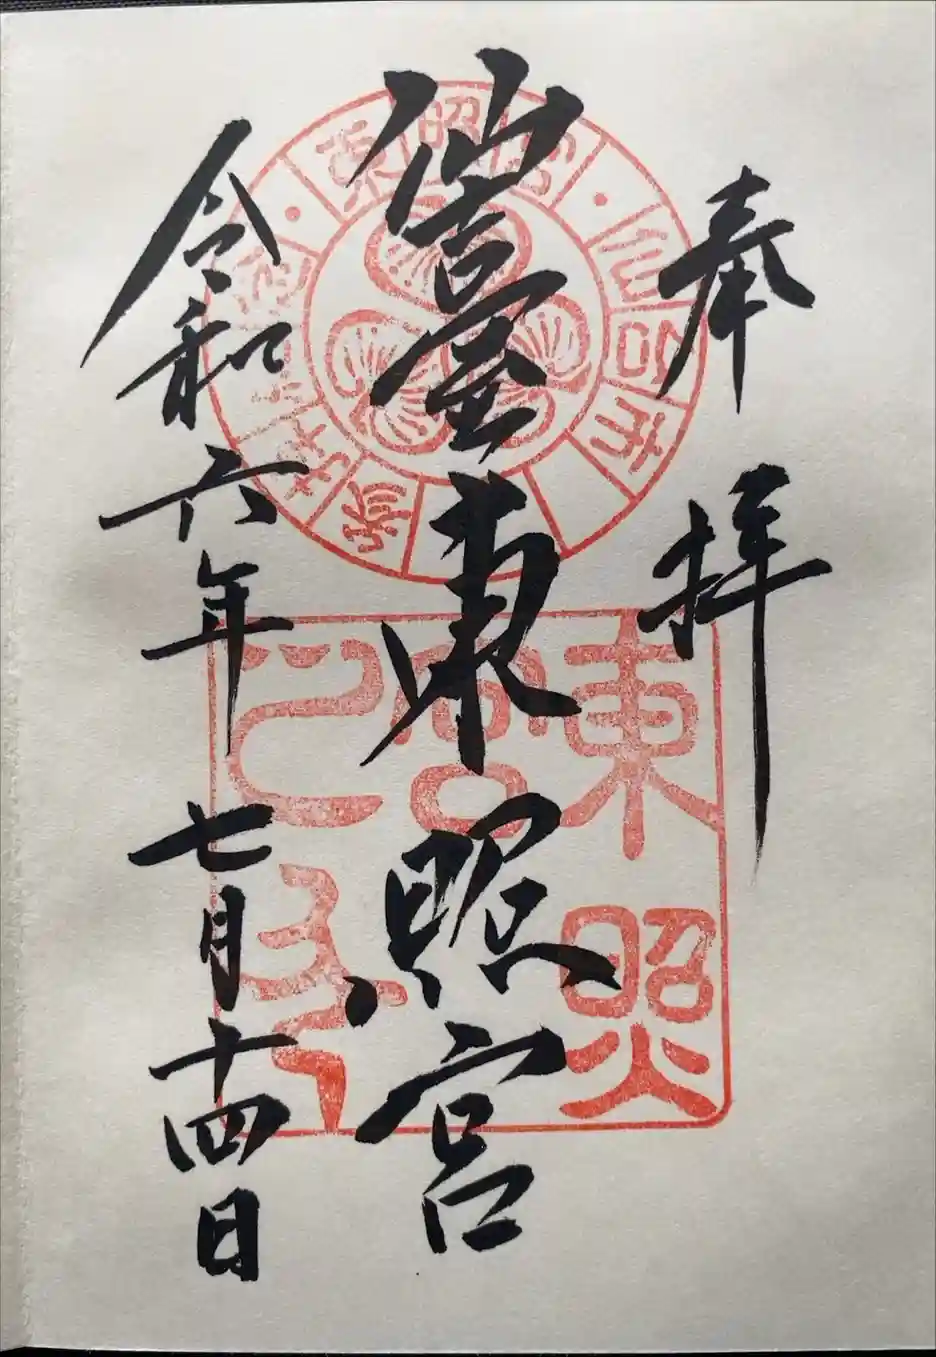 奉拝
仙臺東照宮
令和六年七月十四日
東照宮
東照宮